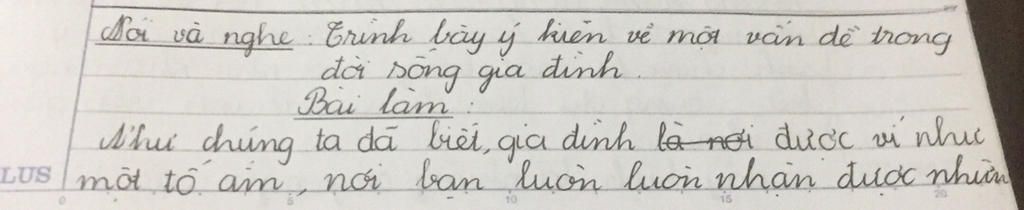 Nói và nghe : Trình bày ý kiến về một vấn đề trong
đời sống gia đình.
Bài làm :
Như chúng ta đã biết, gia đình là nơi được ví như
một tổ ấm, nơi bạn luôn luôn nhận được những
LUS
0 5 10 15 20